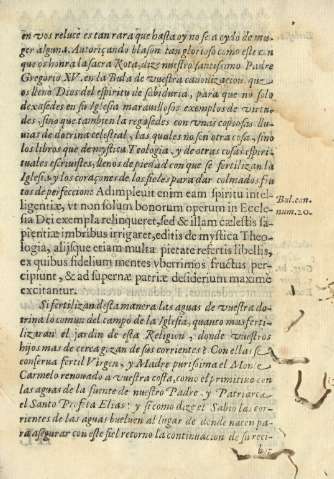 en vos reluce es tan rara que hasta oy no se a oydo de mu-
ger alguna. Autoriçando blason tan glorioso como este con
que os honra la sacra Rota, dize nuestro santissimo Padre
Gregorio XV. en la Bula de vuestra canonizacion, que
os lleno Dios del espiritu de sabiduria, para que no solo
dexasedes en su Iglesia marauillosos exemplos de virtu-
des, sino que tambien la regasedes con vnas copiosas llu-
uias de doctrina celestial, las quales no son otra cosa, sino
los libros que de mystica Teologia, y de otras cosas espiri-
tuales escriuistes, llenos de piedad con que se fertilizan la
Iglesia, y los coraçones de los fieles para dar colmados fru-
tos de perfeccion: Adimpleuit enim eam spiritu intel-
ligentiæ, vt non solum bonorum operum in Eccle-
sia Dei exempla relinqueret, sed & illam cælestis sa-
pientiæ imbribus irrigaret, editis de mystica Theo-
logia, alijsque etiam multa pietate refertis libellis,
ex quibus fidelium mentes vberrimos fructus per-
cipiunt, & ad supernæ patriæ desiderium maxime
excitantur.
Bul. can.
num. 20.
Si fertilizan desta manera las aguas de vuestra do-
trina lo comun del campo de la Iglesia, quanto mas ferti-
lizaran el jardin de esta Religion, donde vuestros
hijos mas de cerca gozan de sus corrientes? Con ellas se
conserua fertil Virgen, y Madre purissima el Monte
Carmelo renouado a vuestra costa, como el primitiuo con
las aguas de la fuente de nuestro Padre, y Patriarca
el Santo Profeta Elias: y si como dize el Sabio las cor-
rientes de las aguas bueluen al lugar de donde nacen pa-
ra asegurar con este fiel retorno la continuacion de su reci-